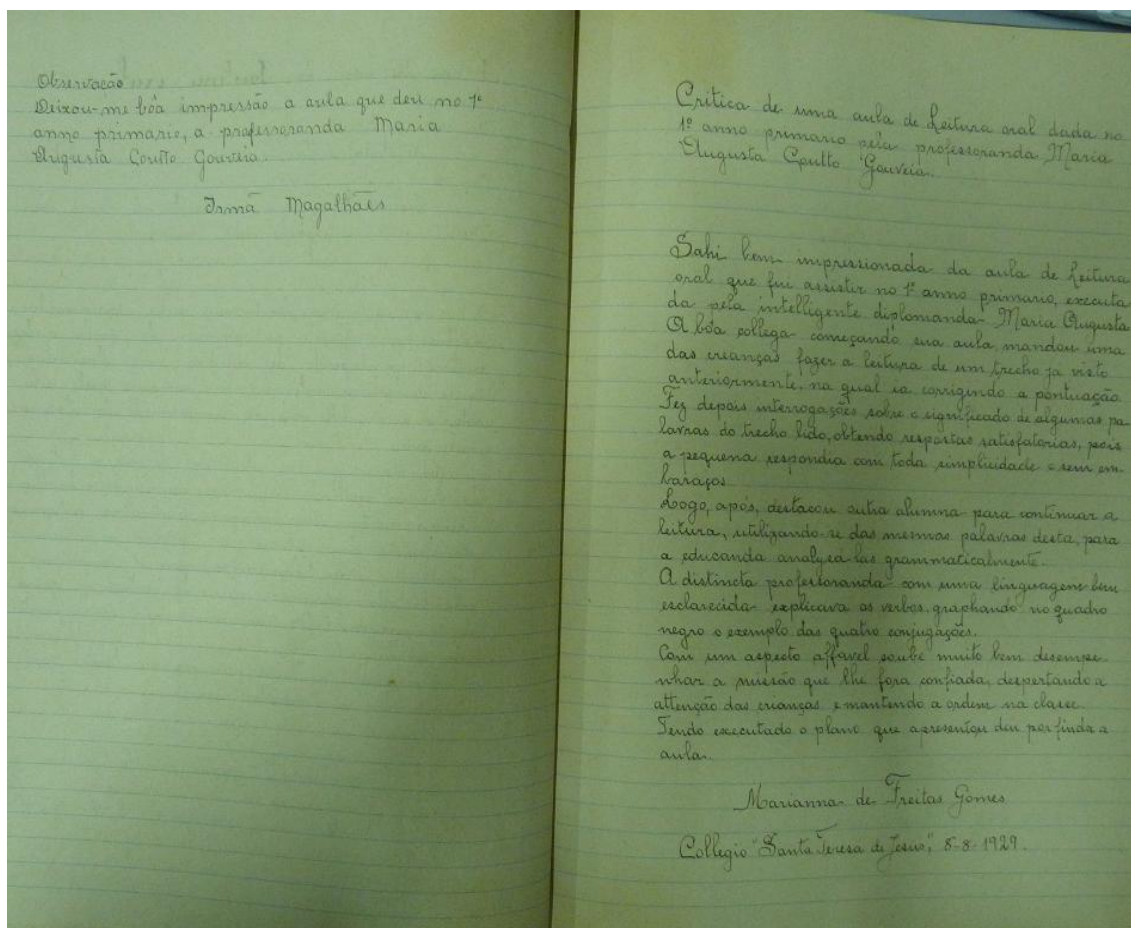 Observação
Deixou-me bôa impressão a aula que deu no 1º
anno primario, a professoranda Maria
Augusta Coutto Gouveia.
Irmã Magalhães
Critica de uma aula de Leitura oral dada no
1º anno primario pela professoranda Maria
Augusta Coutto Gouveia.
Sahi bem impressionada da aula de Leitura
oral que fui assistir no 1º anno primario, executa
da pela intelligente diplomanda Maria Augusta
A bôa collega começando sua aula, mandou uma
das creanças fazer a leitura de um trecho ja visto
anteriormente, na qual ia corrigindo a pontuação
Fez depois interrogações sobre o significado de algumas pa
lavras do trecho lido, obtendo respostas satisfatorias, pois
a pequena respondia com toda simplicidade e sem em-
baraços.
Logo, após, destacou outra alumna para continuar a
leitura, utilizando-se das mesmas palavras desta, para
a educanda analysá-las grammaticalmente.
A distincta professoranda com uma linguagem bem
esclarecida explicava os verbos, graphando no quadro
negro o exemplo das quatro conjugações.
Com um aspecto affavel soube muito bem desempe-
nhar a missão que lhe fora confiada, despertando a
attenção das creanças e mantendo a ordem na classe.
Tendo executado o plano que apresentou deu por finda a
aula.
Marianna de Freitas Gomes
Collegio "Santa Teresa de Jesus", 8-8-1929.